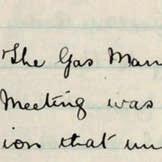 The Gas Man
Meeting was
ion that un